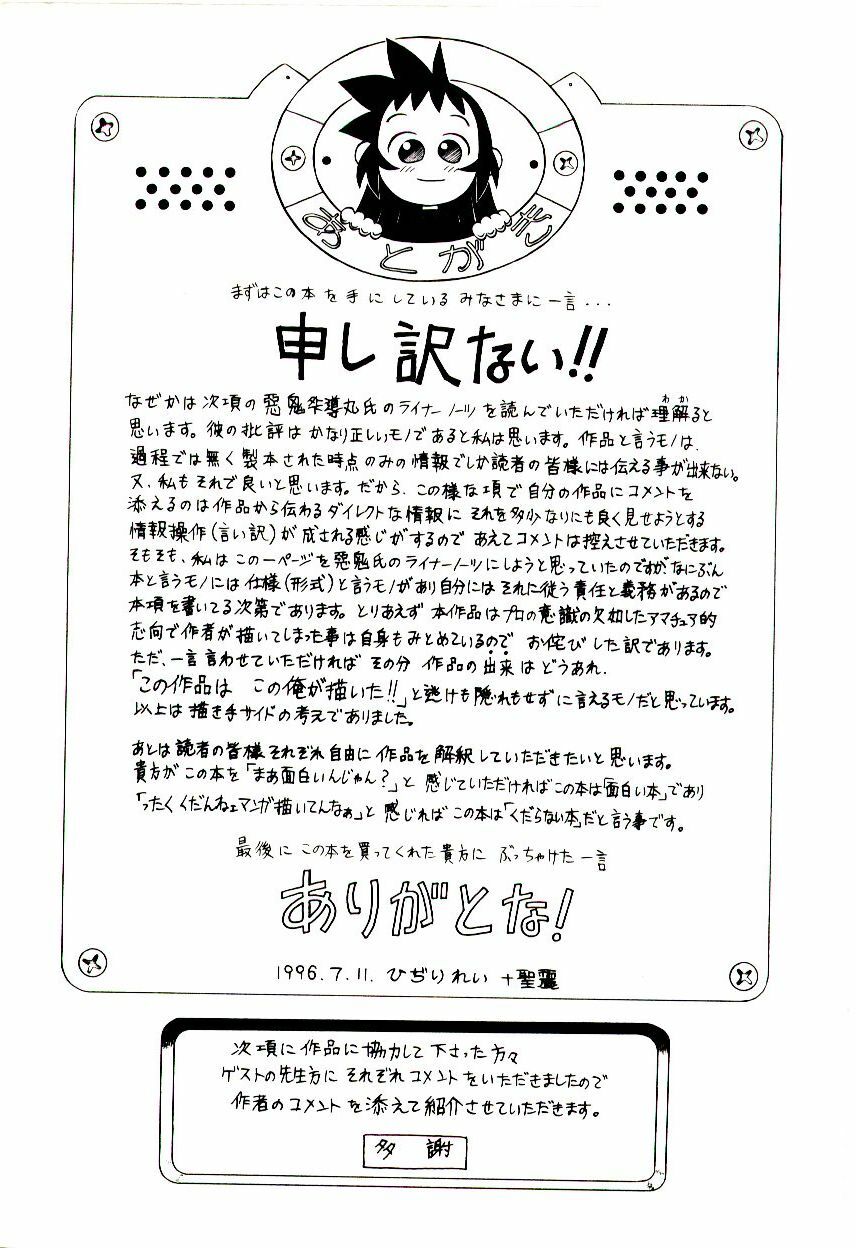 あとがき
まずはこの本を手にしているみなさまに一言...
申し訳ない!!
なぜかは次項の惡鬼羊導丸氏のライナーノーツを読んでいただければ理解ると
わか
思います。彼の批評はかなり正しいモノであると私は思います。作品と言うモノは、
過程では無く製本された時点のみの情報でしか読者の皆様には伝える事が出来ない。
又、私もそれで良いと思います。だから、この様な項で自分の作品にコメントを
添えるのは作品から伝わるダイレクトな情報にそれを多少なりにも良く見せようとする
情報操作(言い訳)が成される感じがするのであえてコメントは控えさせていただきます。
そもそも、私はこの一ページを惡鬼氏のライナーノーツにしようと思っていたのですがなにぶん
本と言うモノには仕様(形式)と言うモノがあり自分にはそれに従う責任と義務があるので
本項を書いてる次第であります。とりあえず本作品はプロの意識の欠如したアマチュア的
志向で作者が描いてしまった事は自身もみとめているのでお侘びした訳であります。
ただ、一言言わせていただければその分作品の出来はどうあれ、
「この作品は この俺が描いた!!」と逃げも隠れもせずに言えるモノだと思っています。
以上は描き手サイドの考えでありました。
あとは読者の皆様それぞれ自由に作品を解釈していただきたいと思います。
貴方がこの本を「まぁ面白いんじゃん?」と感じていただければこの本は「面白い本」であり
「ったくくだんねェマンガ描いてんなぁ」と感じればこの本は「くだらない本」だと言う事です。
最後にこの本を買ってくれた貴方に ぶっちゃけた一言
ありがとな!
1996.7.11. ひぢりれい +聖麗
次項に作品に協力して下さった方々
ゲストの先生方にそれぞれコメントをいただきましたので
作者のコメントを添えて紹介させていただきます。
多謝